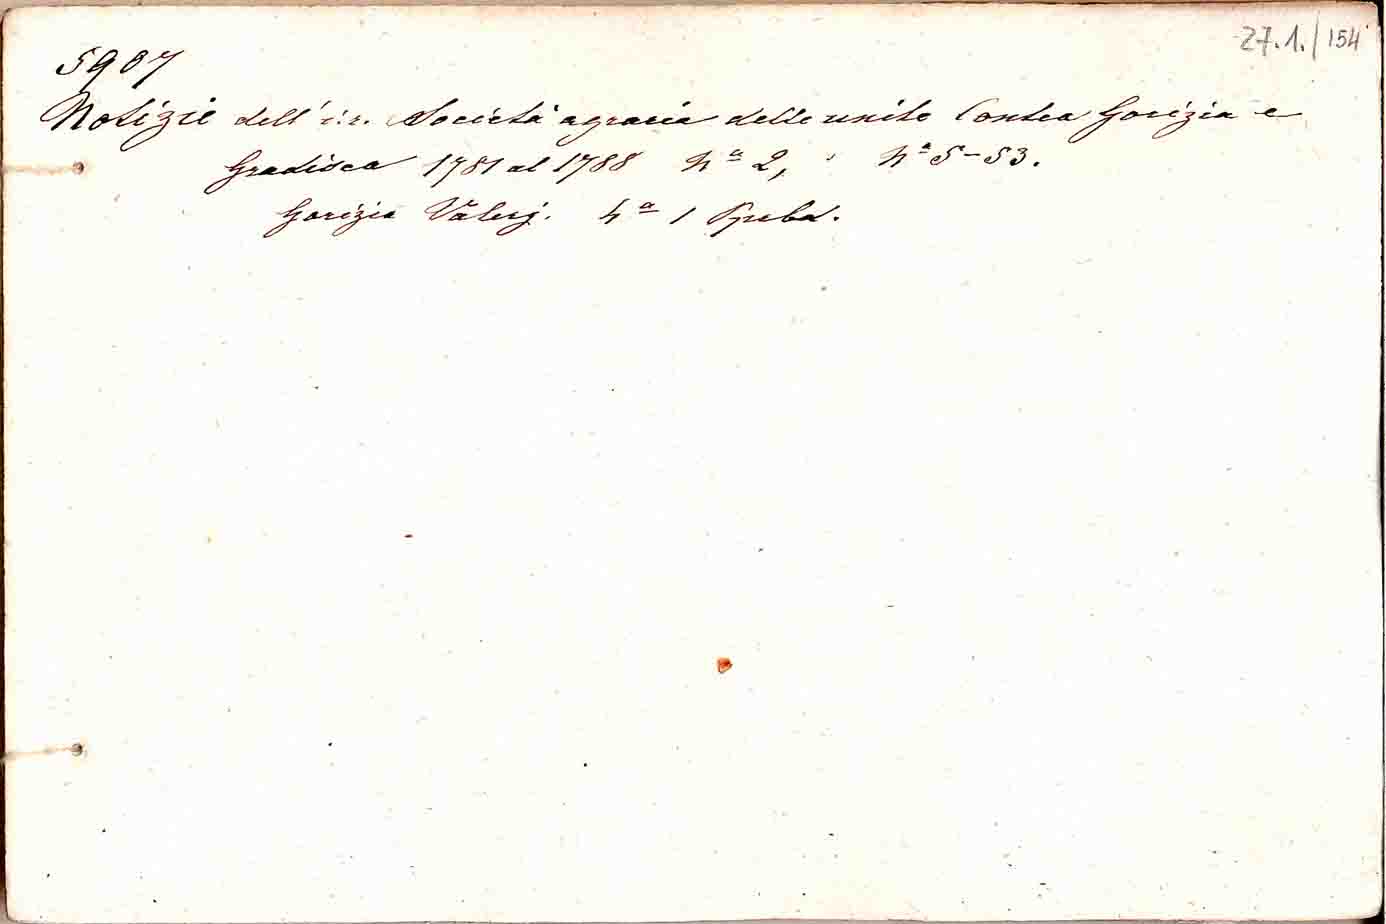 27.1./154
5987
Notizie dell' i.r. Società agraria delle unite Contea Gorizia e
Gradisca 1781 al 1788 Nª 2, Nª 5-53.
Gorizia Valerj. 4ª 1